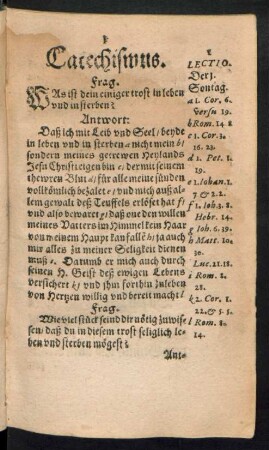 Catechismus.
Frag.
WAs ist dein einiger trost in leben
vnd in sterben?
Antwort:
Daß ich mit Leib vnd Seel / beyde
in leben vnd in sterben a nicht mein b)
sondern meines getrewen Heylands
Jesu Christi eigen bin c / der mit seinem
thewren Blut d / für alle meine sünden
vollkömlich bezalet e / vnd mich auß al-
lem gewalt deß Teuffels erlöset hat f /
vnd also bewaret g / daß one den willen
meines Vatters im Himmel kein Haar
von meinem Haupt kan fallẽ h / ja auch
mir alles zu meiner Seligkeit dienen
muß i. Darumb er mich auch durch
seinen H. Geist deß ewigen Lebens
versichert k / vnd jhm forthin zuleben
von Hertzen willig vnd bereit macht l
Frag.
Wie viel stück seind dir nötig zuwis-
sen / daß du in diesem trost seliglich le-
ben vnd sterben mögest?
Ant-
LECTIO.
Der 1.
Sontag.
a 1. Cor. 6.
Vers. 19.
b Rom. 14 8
c 1. Cor. 3.
16. 23.
d 1. Pet. 1.
19.
e 1. Iohan. 1.
7 & 2.2.
f 1. Iohã. 3. 8.
Hebr. 14.
g Ioh. 6. 39.
h Matt. 10.
30.
Luc. 21. 18.
i Rom. 8.
28.
k 2. Cor. 1.
22. & 5. 5.
l Rom. 8.
14.